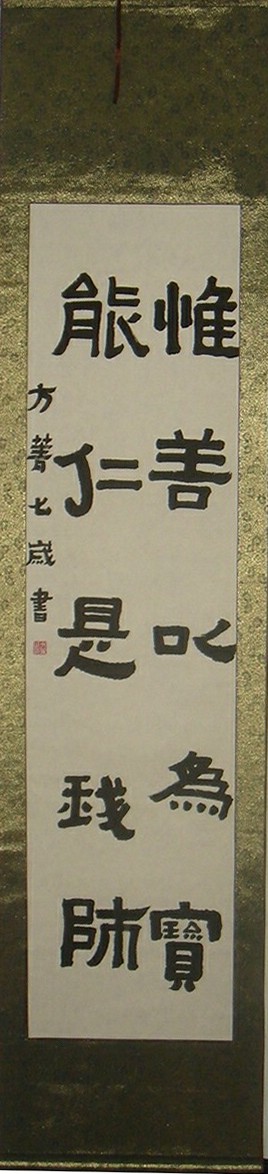 惟善以為寶
能仁是我師
方菁七歲書